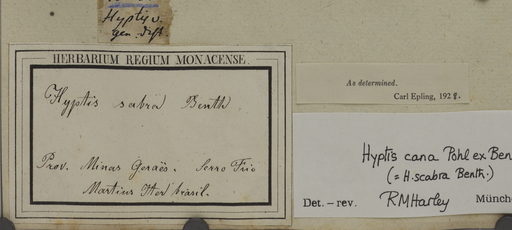 Hyptis v.
gen. diff.
HERBARIUM REGIUM MONACENSE.
Hyptis sabra Benth.
Prov. Minas Geraës. Serro Frio
Martius Iter brasil.
As determined.
Carl Epling, 1928.
Hyptis cana Pohl ex Ben
(= H. scabra Benth.)
Det. – rev. RMHarley Münch